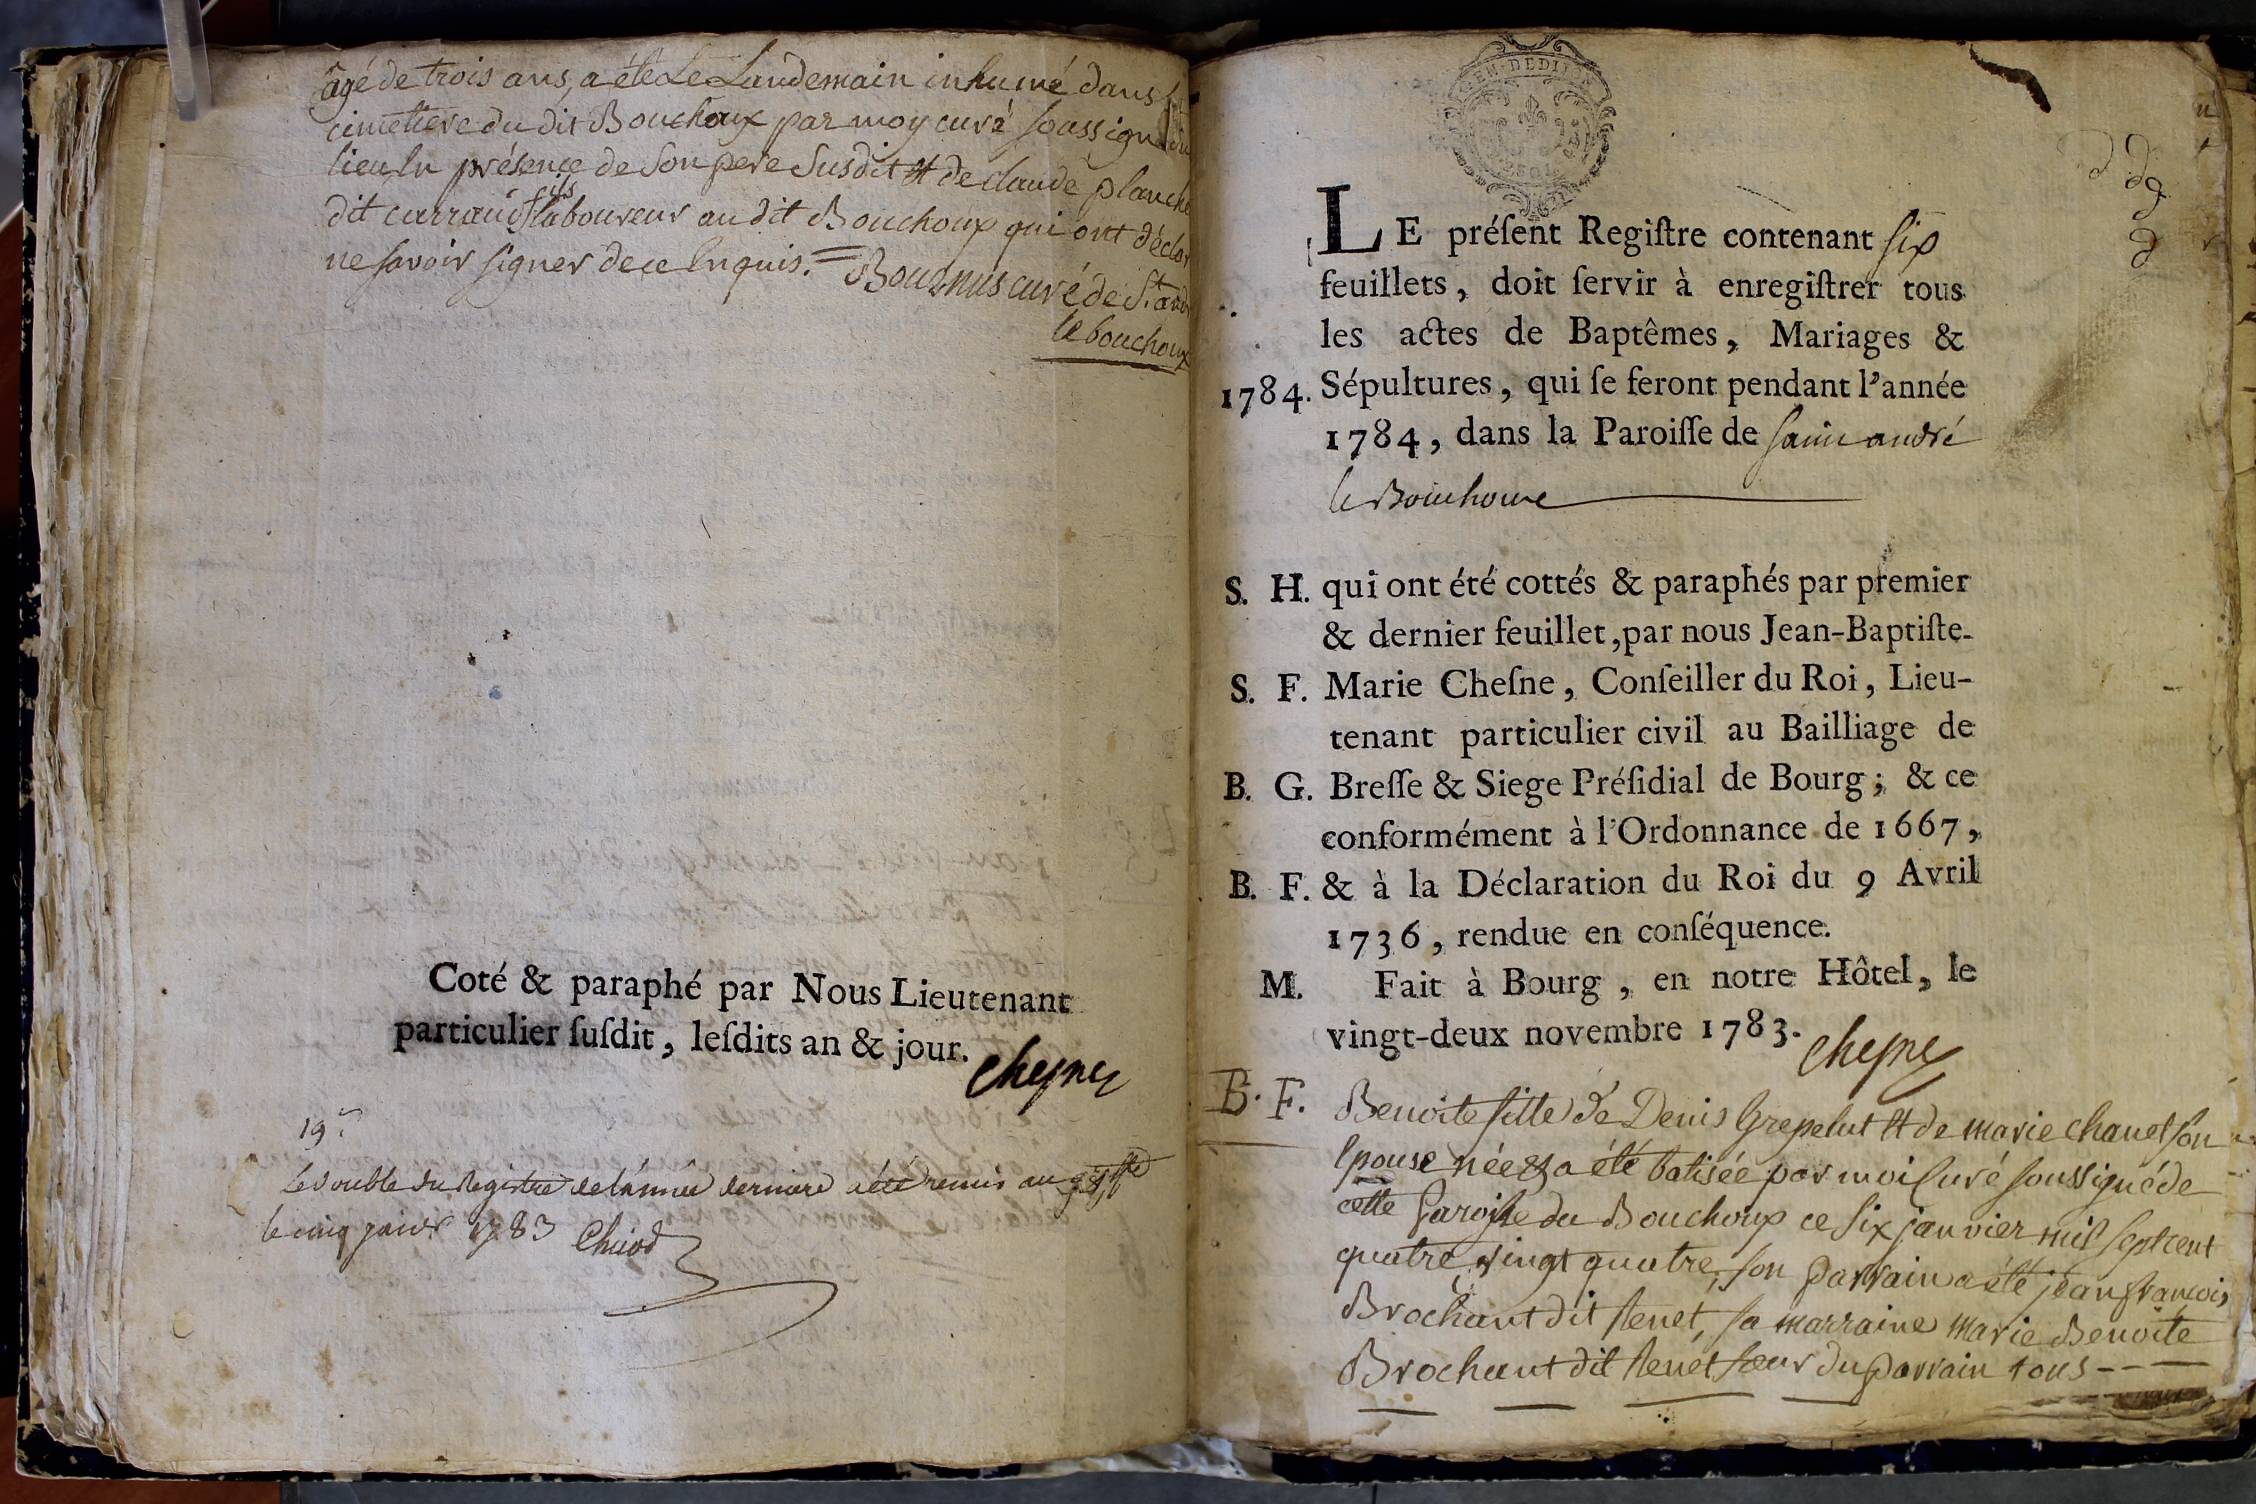 âgé de trois ans, a été Le Landemain inhumé dans
cimetiere du dit Bouchoux par moy curé soussigné
lieu En présence de Son pere Susdit Et de claude planche
dit carraud fils laboureur au dit Bouchoux qui ont déclar
ne savoir signer de ce Enquis. = curé de St. and
le bouchoux
Coté & paraphé par Nous Lieutenant
particulier ſuſdit, leſdits an & jour.
chesne
19
Le double du Registre de l'année derniere a été remis au greffe
le cinq janvr 1783
GEN. DE DIJON
LE préſent Regiſtre contenant six
feuillets, doit ſervir à enregiſtrer tous
les actes de Baptêmes, Mariages &
1784. Sépultures, qui ſe feront pendant l'année
1784, dans la Paroiſſe de saint andré
le Bouchoux
S. H. qui ont été cottés & paraphés par premier
& dernier feuillet, par nous Jean-Baptiſte-
S. F. Marie Cheſne, Conſeiller du Roi, Lieu-
tenant particulier civil au Bailliage de
B. G. Breſſe & Siege Préſidial de Bourg; & ce
conformément à l'Ordonnance de 1667,
B. F. & à la Déclaration du Roi du 9 Avril
1736, rendue en conſéquence.
M. Fait à Bourg, en notre Hôtel, le
vingt-deux novembre 1783.
chesne
B. F. Benoite fille de Denis Grepelut Et de marie chanel son
Epouse née & a été batisée par moi Curé soussigné de
cette Paroisse du Bouchoux ce six janvier mil sept cent
quatre vingt quatre, son parrain a été jean françois
Brochant dit Renet, sa marraine marie Benoite
Brochant dit Renet sœur du parrain tous - - -